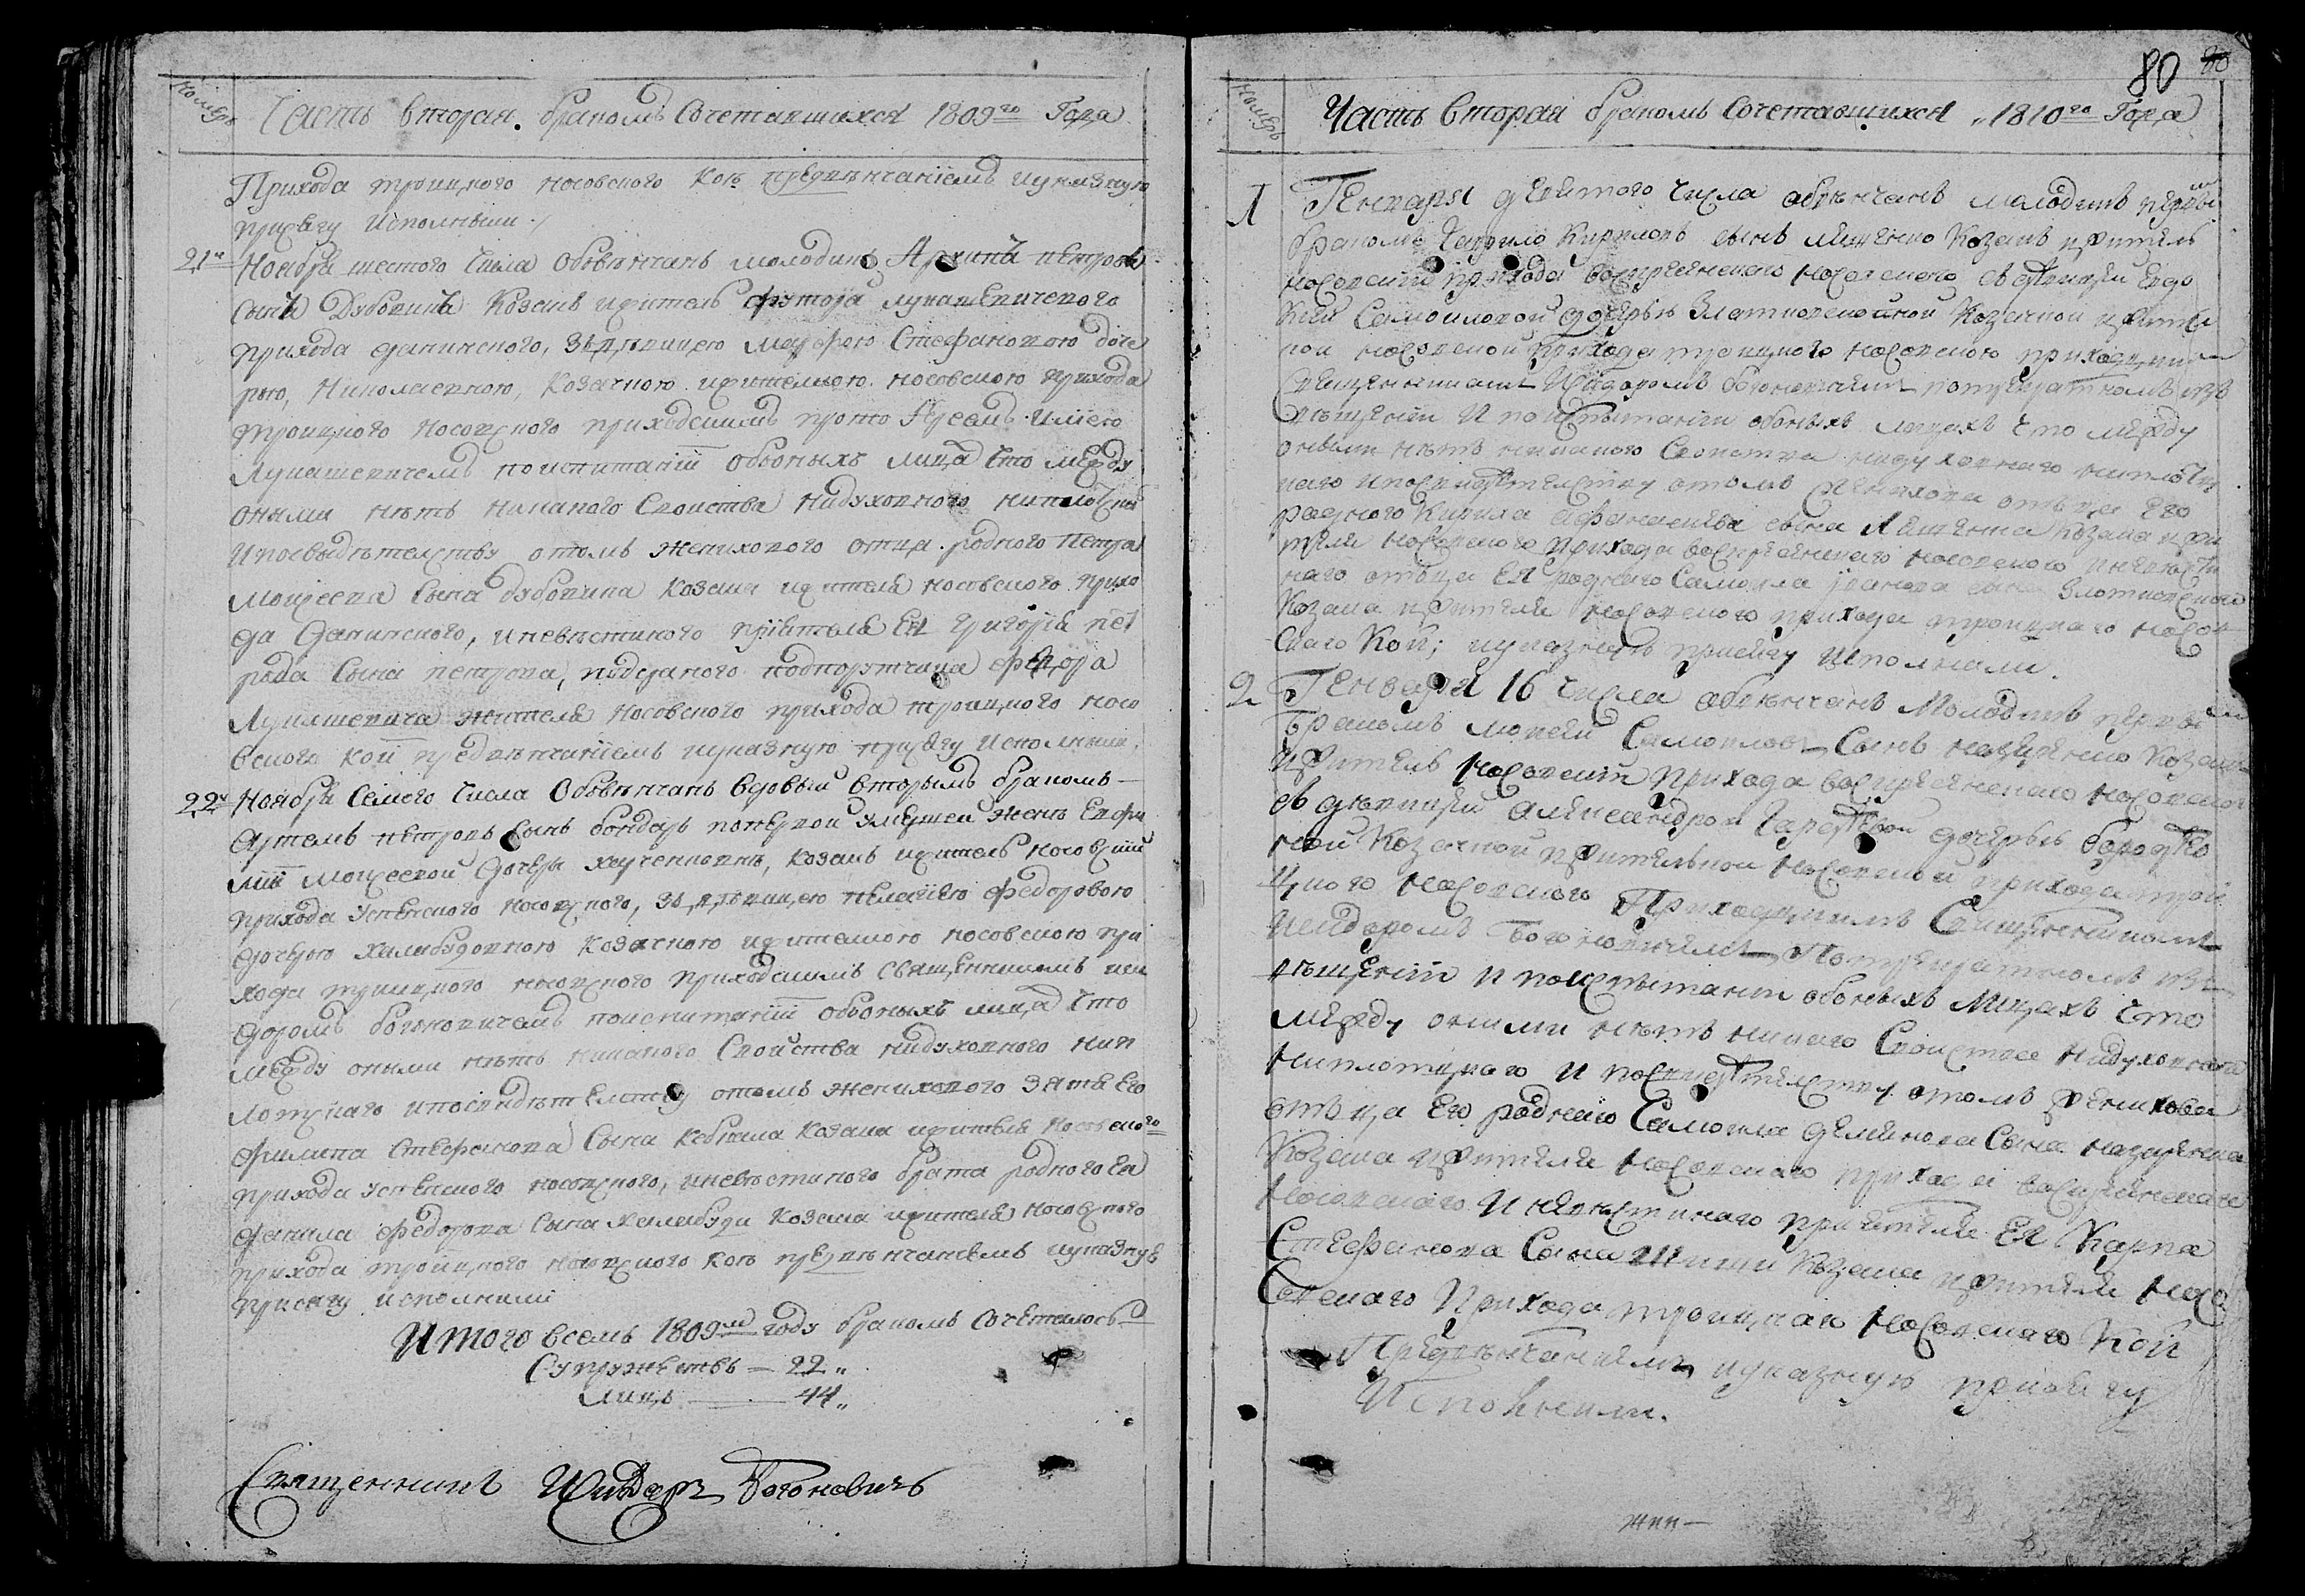 Номеръ
Часть вторая. бракомъ Сочетавшихся 1809го Года
Прихода троицкого носовского кои предвѣнчаніемъ иуказную
присягу Исполныли
21и Ноября шестого Числа Обвѣнчанъ молодикъ Архипъ петровъ
Сынъ Дубовикъ Козакъ ижитель футора лукашевичевого
прихода данинского, здѣвицею Марфою Стефановою доче
рю, Николаевною, козачкою ижителкою носовскою прихода
троицкого носовского приходскимъ прото
Лукашевичемъ поиспитаніи обоихъ лица Что между
оными нѣтъ никакого Своиства нидуховного ниплотска
ипосвыдѣтелству отомъ женихового отца родного петра
Моисеева Сына дубовика козака ижителя носовского прихо
да Данинского, иневѣстиного пріителя Ея Григорія
Сына петрова, подпорутчика федора
Лукашевича жителя Носовского прихода троицкого носо
вского кои предвѣнчаніемъ иуказную присягу Исполныли
22и Ноября Семого Числа Обвѣнчанъ вдовый вторымъ бракомъ
Артемъ петровъ Сынъ бондарь попервой умершей женѣ Евфи
міи Моисеевой дочери козакъ ижитель Носовскій
прихода успенского носовского, здѣвицею пелагіею федоровою
дочерю халабудовною козачкою ижителкою носовскою при
хода троицкого носовского приходскимъ Священникомъ иси
доромъ богоновичемъ поиспитаніи обоихъ лица Что
между оными нѣтъ никакого Своиства нидуховного нип
лотскаго ипосвидѣтелству отомъ женихового зятя Его
филипа Стефанова Сына козака ижителя Носовского
прихода успенского носовского, иневѣстиного брата родного Ея
данила федорова Сына халабуди козака ижителя носовского
прихода троицкого носовского кои предвѣнчаніемъ иуказную
присягу исполнили
Итого всемъ 1809мъ году бракомъ Сочеталось
Супружествъ — 22
лицъ — 44
Священникъ Исидоръ Богоновичъ
80
Номеръ
Часть вторая бракомъ Сочетавшихся 1810го Года
1 Генваря девятого числа обвѣнчанъ молодикъ первымъ
бракомъ Гаврило Кириловъ сынъ Ляшенко Козакъ ижитель
носовский прихода воскресенскаго носовскаго сдѣвицею Евдо
киею Самоиловой дочерью Злотковской Козачкой ижите
лкой носовской прихода троицкого носовского приходскимъ
священникомъ Исидоромъ богоновичемъ потрекратномъ изв
ѣщеніи И поиспытаніи обоихъ лицахъ что между
оными нѣтъ никакого Своиства нидуховнаго ниплотц
каго ипосвидѣтелству отомъ женихова отъца Его
родного Кирила афанасиева сына Ляшенка козака ижи
теля носовского прихода воскресенскаго носовского иневѣсти
наго отъца Ея родного Самоила иванова сына Злотковского
Козака ижителя носовского прихода троицкаго носов
скаго Кои; иуказную присягу исполнили.
2 Генваря 16 числа обвѣнчанъ Молодикъ первымъ
бракомъ мокей Самоиловъ Сынъ назаренко козакъ
ижитель носовский прихода воскресенского носовского
сдѣвицей александрой дочерью бородко
вной Козачкой ижителькой носовской прихода трои
цкого носовского Приходскимъ Священникомъ
Исидоромъ Богоновичемъ Потрекратномъ изв
ѣщеніи и поиспытаніи обоихъ лицахъ что
между оними нѣтъ никаго Своиства нидуховнаго
ниплотцкаго И посвидѣтелству отомъ женихова
отъца Его родного Самоила деминова Сына назаренка
Козака ижителя носовского прихода воскресенскаго
носовскаго И невѣстинаго пріятеля Ея Карпа
Стефанова Сына Козака ижителя носо
вского Прихода троицкаго носовскаго Кои
Предвѣнчаниемъ иуказную присягу
Исполнили.